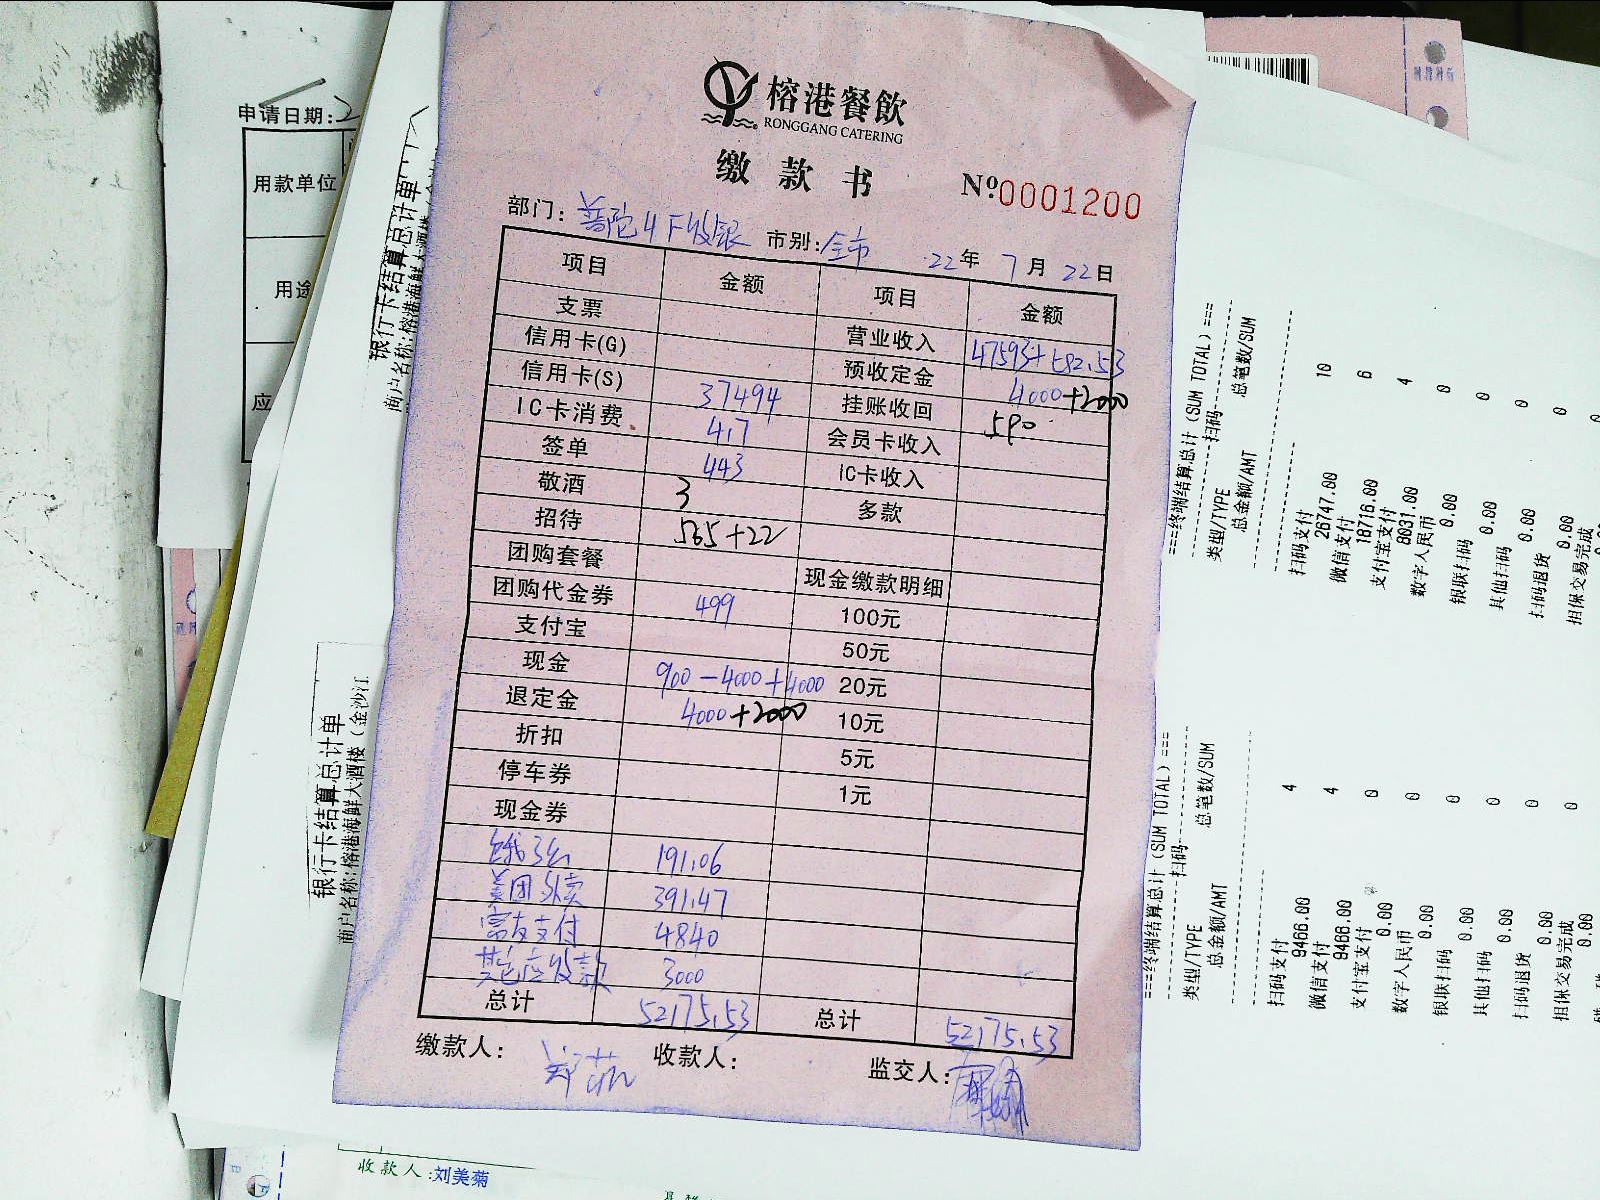 榕港餐飲
RONGGANG CATERING
缴款书
№0001200
部门: 普陀4F收银 市别: 全市 22年 7月 22日
项目 金额 项目 金额
支票 营业收入 47593+582.53
信用卡(G) 预收定金 4000+2000
信用卡(S) 37494 挂账收回 590
IC卡消费 417 会员卡收入
签单 443 IC卡收入
敬酒 3 多款
招待 565+22
团购套餐 现金缴款明细
团购代金券 499 100元
支付宝 50元
现金 900-4000+4000 20元
退定金 4000+2000 10元
折扣 5元
停车券 1元
现金券
饿了么 191.06
美团外卖 391.47
富友支付 4840
其它应收款 3000
总计 52175.53 总计 52175.53
缴款人: 收款人: 监交人:
申请日期:
用款单位
用途
应
银行卡结算总计单
商户名称:榕港海鲜大酒
银行卡结算总计单
商户名称:榕港海鲜大酒楼（金沙江
===终端结算总计(SUM TOTAL)===
扫码
类型/TYPE 总笔数/SUM
总金额/AMT
扫码支付 10
26747.00
微信支付 6
18716.00
支付宝支付 4
8031.00
数字人民币 0
0.00
银联扫码 0
0.00
其他扫码 0
0.00
扫码退货 0
0.00
担保交易完成 0
0.00
===终端结算总计(SUM TOTAL)===
扫码
类型/TYPE 总笔数/SUM
总金额/AMT
扫码支付 4
9466.00
微信支付 4
9466.00
支付宝支付 0
0.00
数字人民币 0
0.00
银联扫码 0
0.00
其他扫码 0
0.00
扫码退货 0
0.00
担保交易完成 0
0.00
收款人:刘美菊